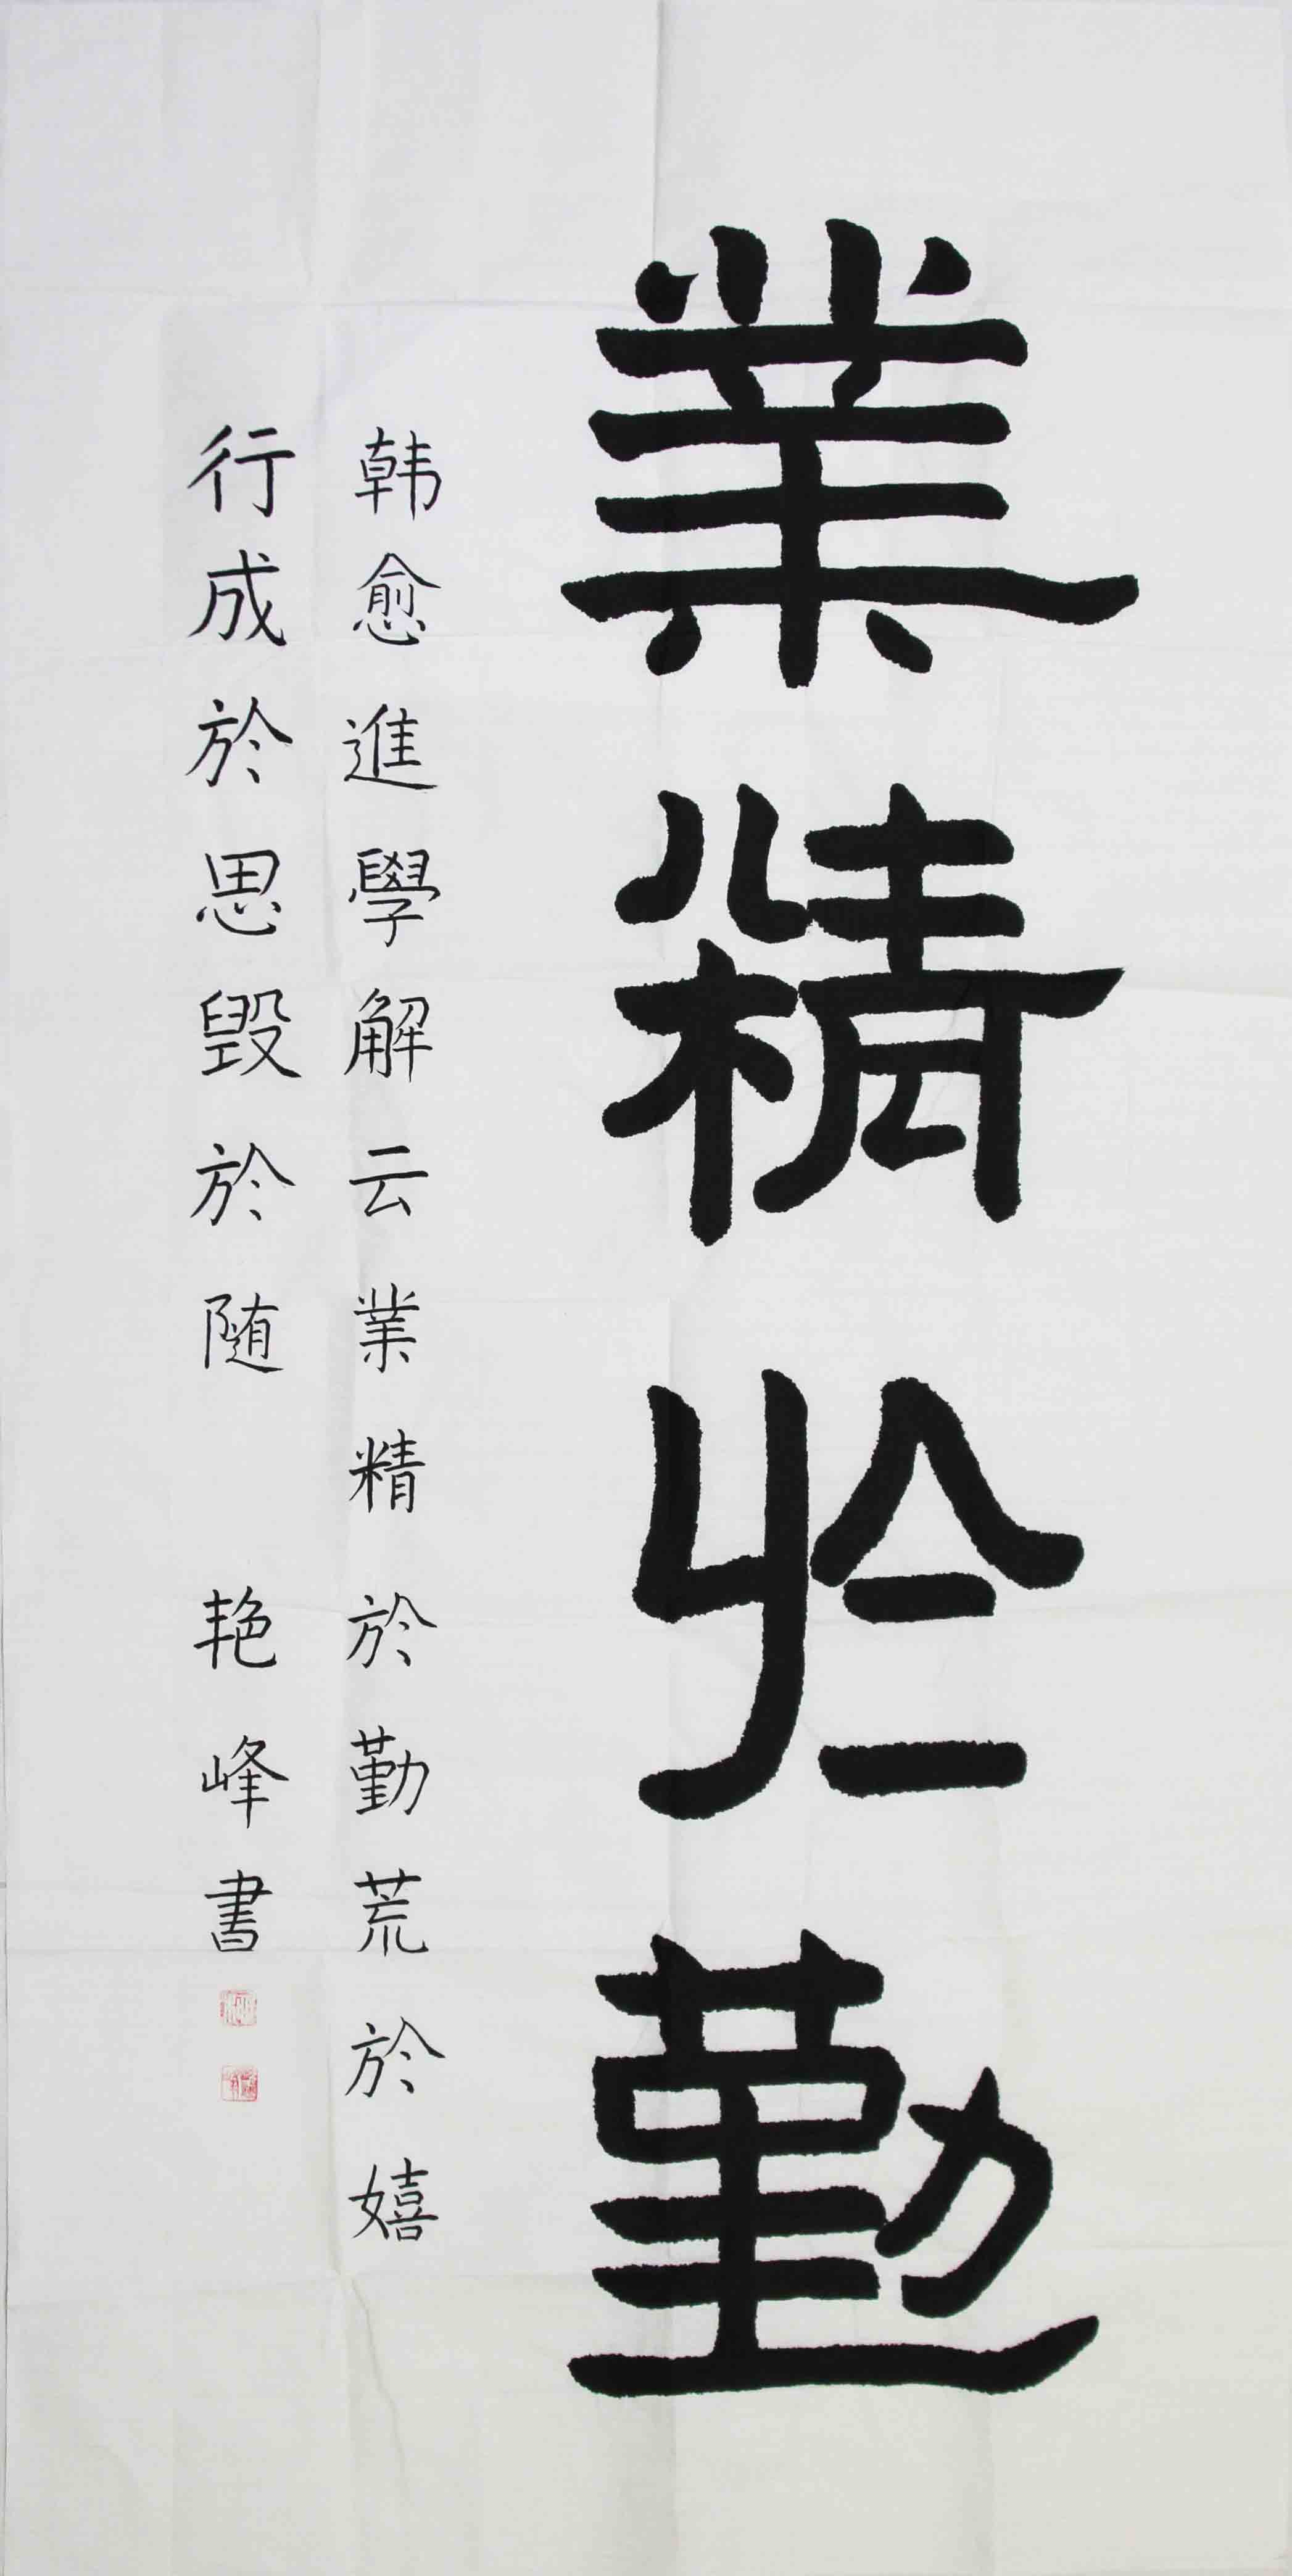 業精於勤
韩愈進學解云業精於勤荒於嬉
行成於思毀於随 艳峰書